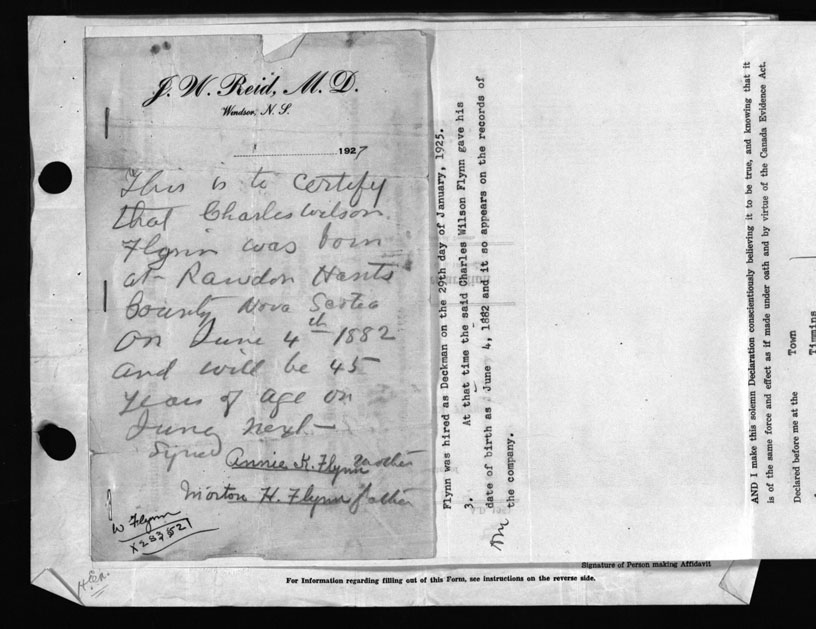 J. W. Reid, M. D.
Windsor, N. S.
1927
This is to certify
that Charles Wilson
Flynn was born
at Rawdon Hants
County Nova Scotia
on June 4th 1882
and will be 45
years of age on
June next —
Signed Annie K. Flynn mother
Morton H. Flynn father
W Flynn
Flynn was hired as Deckman on the 29th day of January, 1925.
3. At that time the said Charles Wilson Flynn gave his
date of birth as June 4, 1882 and it so appears on the records of
the company.
AND I make this solemn Declaration conscientiously believing it to be true, and knowing that it
is of the same force and effect as if made under oath and by virtue of the Canada Evidence Act.
Declared before me at the Town
Timmins
Signature of Person making Affidavit
For Information regarding filling out of this Form, see instructions on the reverse side.